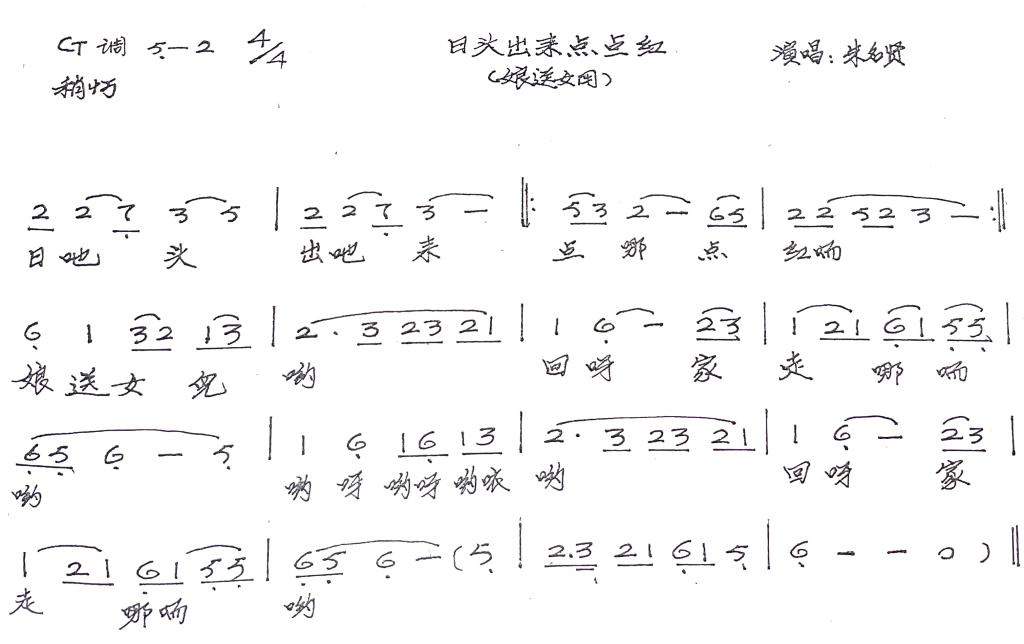 CT 调 5—2 4/4 日头出来点点红 演唱：朱名贤
稍快 (娘送女回)
2 2 7 3 5 | 2 2 7 3 — ‖: 5 3 2 — 6 5 | 2 2 5 2 3 — :‖
日吔 头 出吔 来 点 哪 点 红响
6 1 3 2 1 3 | 2 · 3 2 3 2 1 | 1 6 — 2 3 | 1 2 1 6 1 5 5 |
娘 送 女 儿 哟 回 呀 家 走 哪 响
6 5 6 — 5 | 1 6 1 6 1 3 | 2 · 3 2 3 2 1 | 1 6 — 2 3 |
哟 哟 呀 哟呀 哟哝 哟 回 呀 家
1 2 1 6 1 5 5 | 6 5 6 — (5 | 2.3 2 1 6 1 5 | 6 — — 0 ) ‖
走 哪响 哟